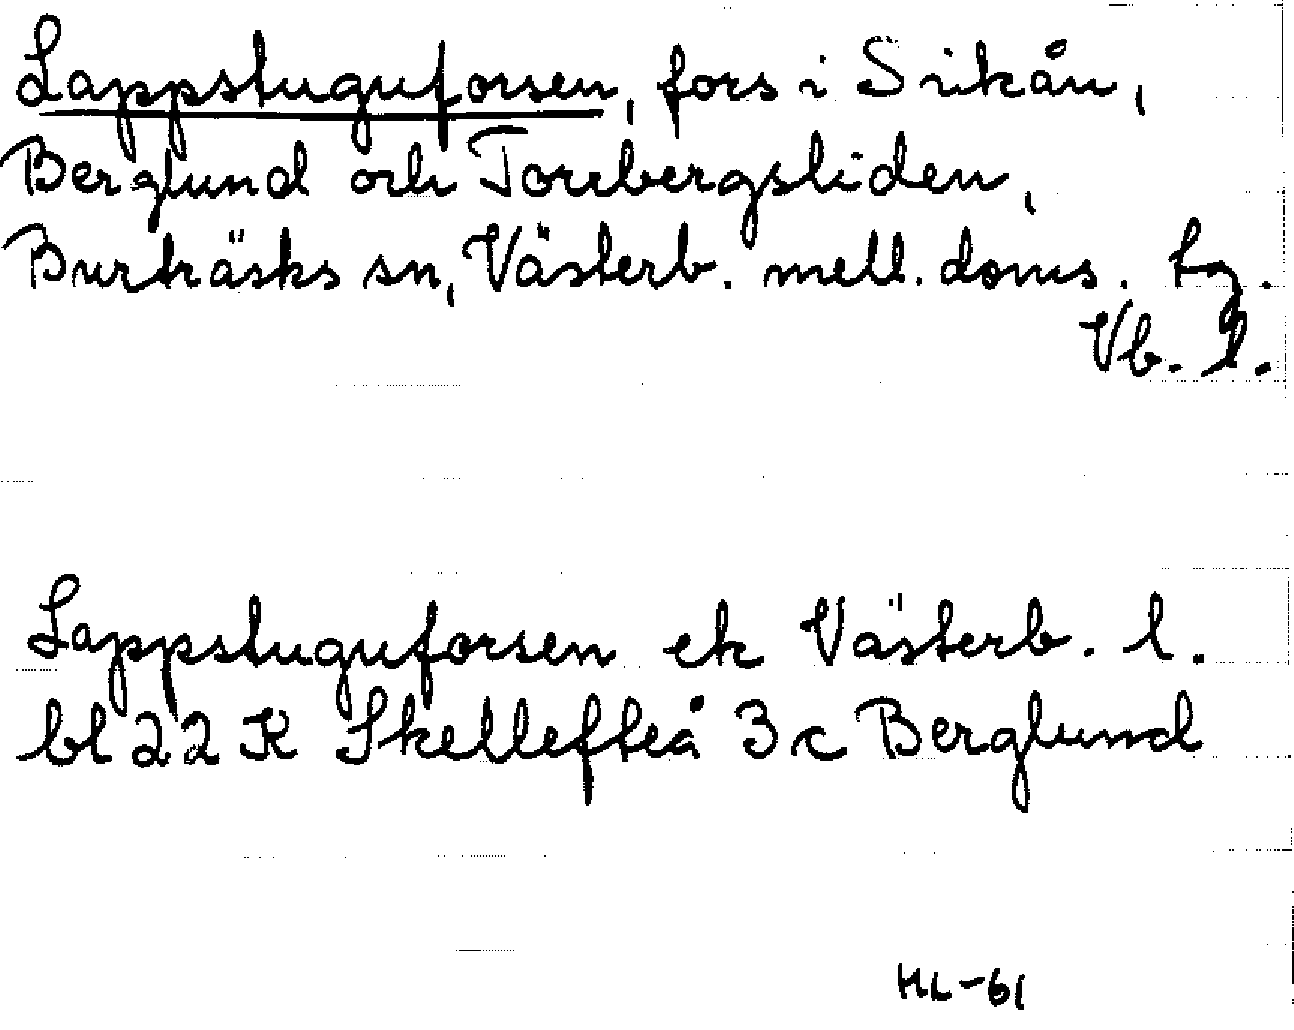 Lappstuguforsen, fors i Sikån,
Berglund och Torrbergsliden,
Burträsks sn, Västerb. mell. doms. tg.
Vb. l.
Lappstuguforsen ek Västerb. l.
bl 22 K Skellefteå 3 c Berglund
HL-61